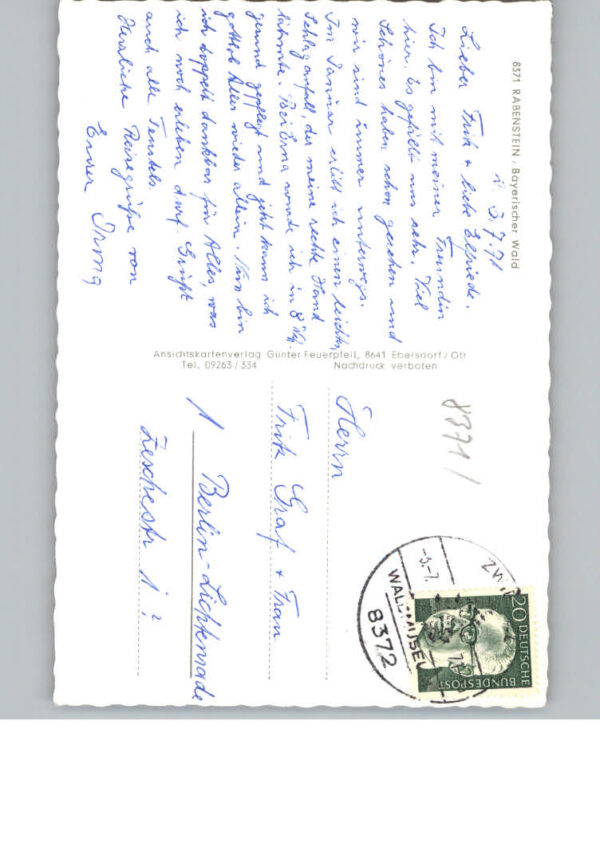 8371 RABENSTEIN / Bayerischer Wald
3.7.71
Lieber Fritz + liebe Elfriede.
Ich bin mit meiner Freundin
hier. Es gefällt uns sehr. Viel
Schönes haben schon gesehen und
wir sind immer unterwegs.
Im Januar erlitt ich einen leichten
Schlaganfall, der meine rechte Hand
lähmte. Bei Erna wurde ich in 8
gesund gepflegt und jetzt kann ich
gottlob Alles wieder allein. Nun bin
ich doppelt dankbar für Alles, was
ich noch erleben darf. Grüßt
auch alle
Herzliche Reisegrüße von
Eurer Irmg
Ansichtskartenverlag Günter Feuerpfeil, 8641 Ebersdorf / Ofr
Tel. 09263 / 334 Nachdruck verboten
8371/
Herrn
Fritz Graf + Frau
1 Berlin-Lichtenrade
Zeschestr 1 ?
ZWI
-5.-7.
WALDMUSEU
8372
20
DEUTSCHE
BUNDESPOST